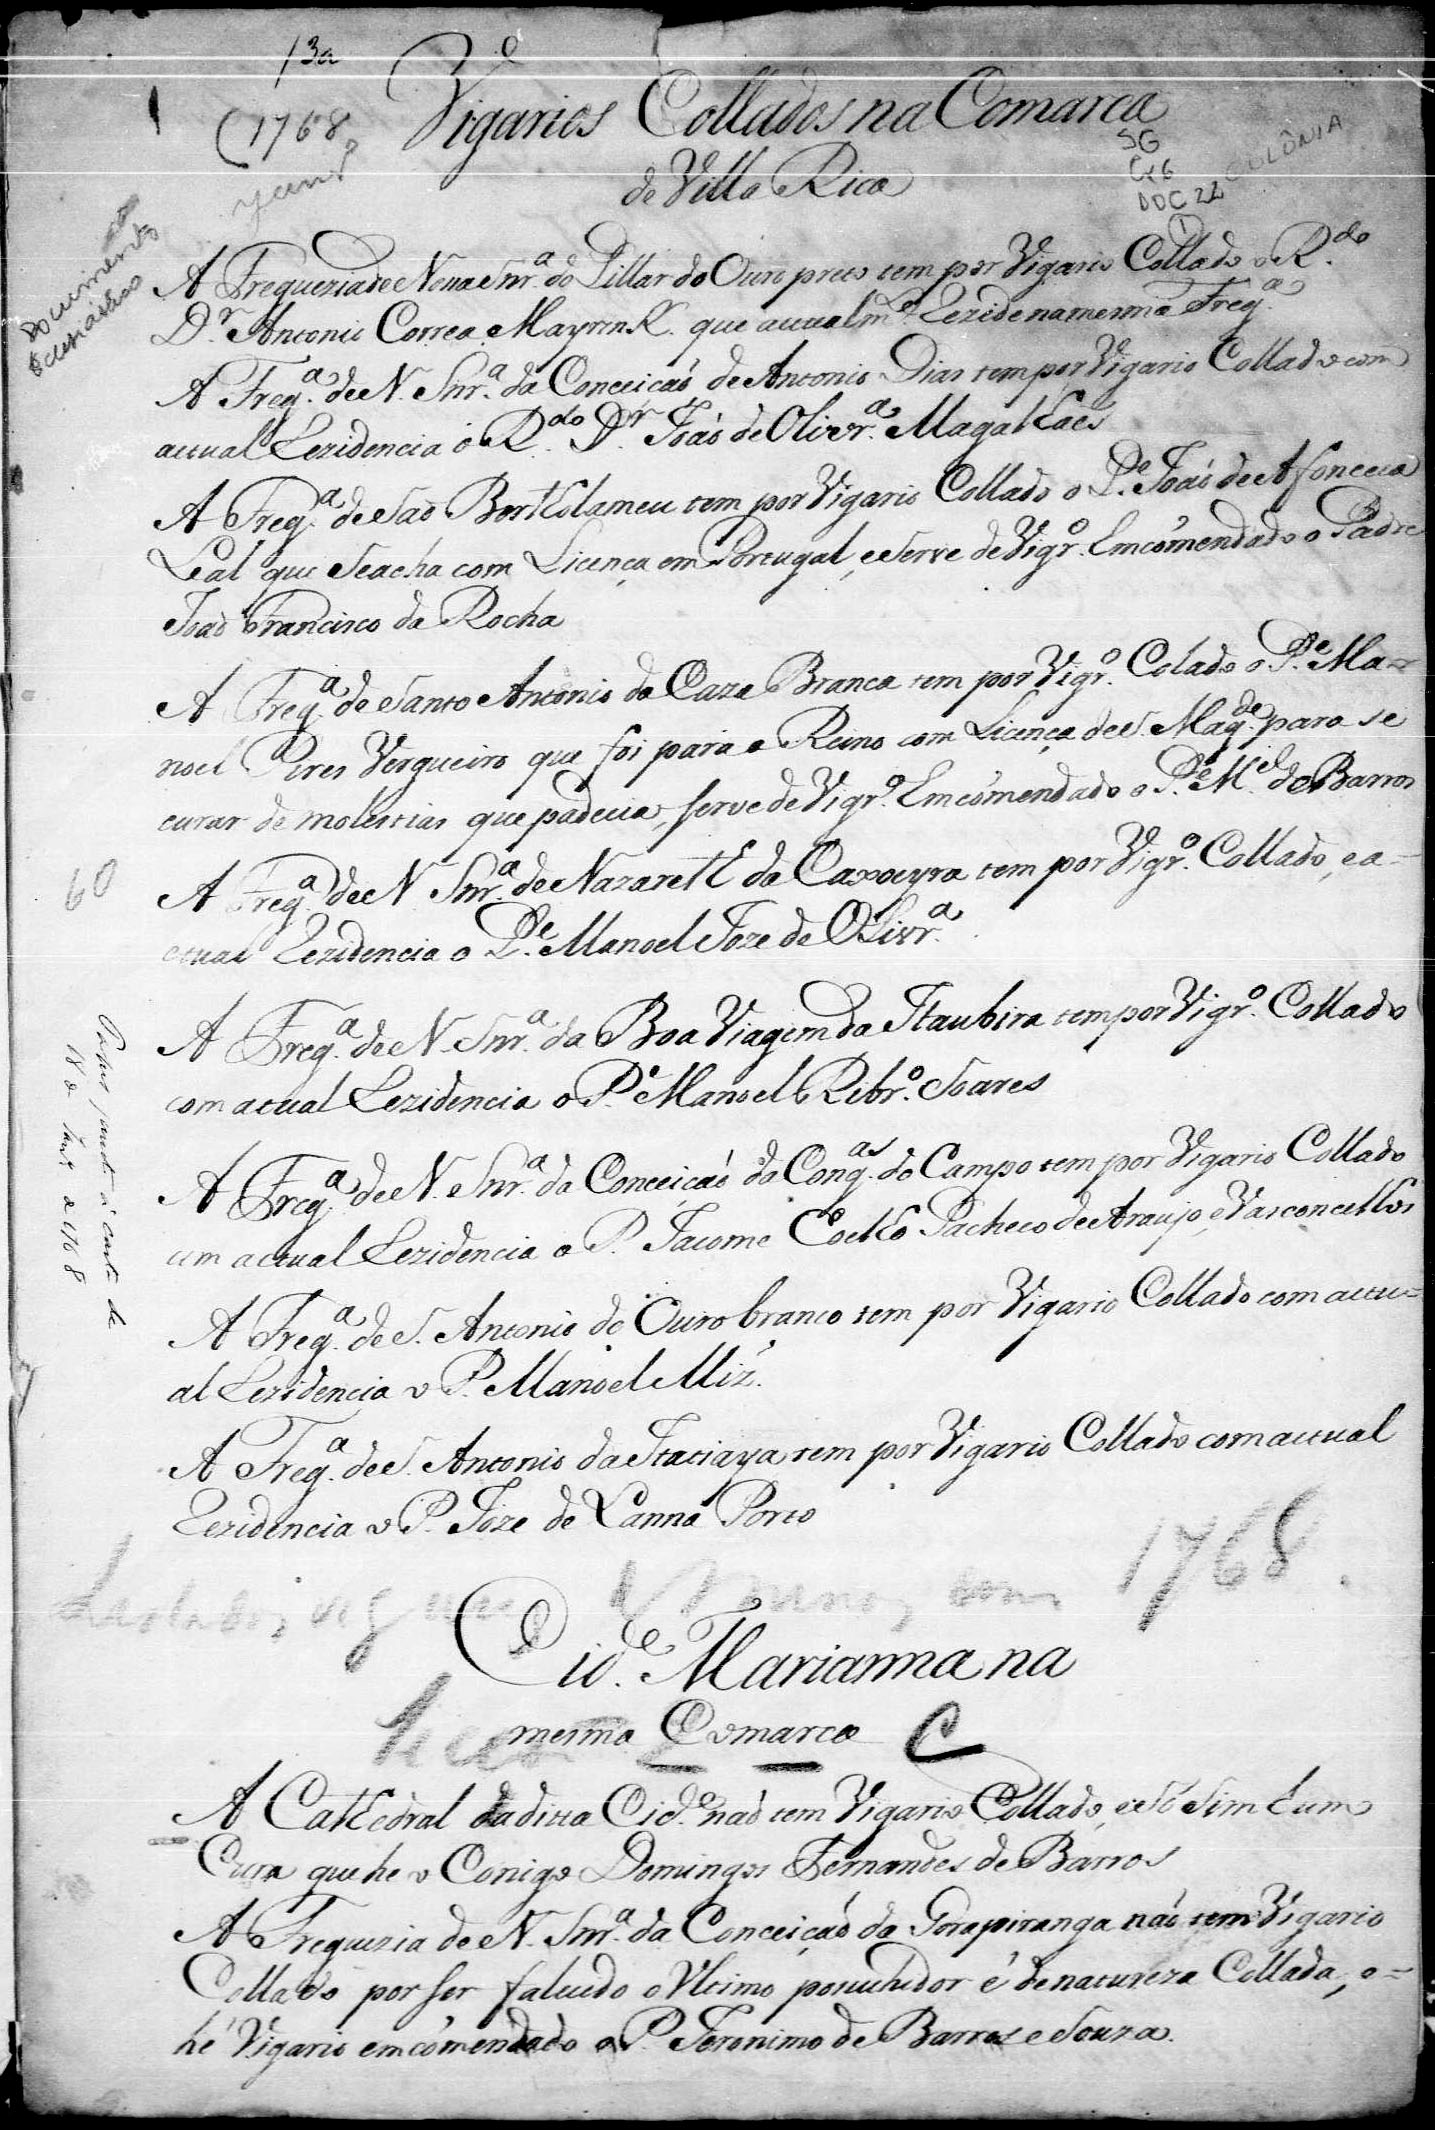 13a
(1768
Vigarios Collados na Comarca
de Villa Rica
SG
CX6
DOC 22
COLÔNIA
1
Documento
Eclesiástico
A Freguezia de Nossa Snr.ª do Pillar do Ouro preto tem por Vigario Collado o R.do
D.r Antonio Correa Mayrink que actualm.e Rezide na mesma Freg.a
A Freg.a de N. Snr.a da Conceicaõ de Antonio Dias tem por Vigario Collado com
actual Rezidencia o R.do D.r Joaõ de Olivr.a Magalhaẽs
A Freg.a de Saõ Bartholameu tem por Vigario Collado o P.e Joaõ de Afonceca
Leal que se acha com Licença em Portugal, e serve de Vigr.o Emcõmendado o Padre
Joaõ Francisco da Rocha
A Freg.a de Santo Antonio da Caza Branca tem por Vigr.o Colado o P.e Ma=
noel Pires Vergueiro que foi para o Reino com Licença de S. Mag.de para se
curar de molestias que padecia, serve de Vigr.o Emcõmendado o P.e M.el de Barros
A Freg.a de N. Snr.a de Nazareth da Caxoeyra tem por Vigr.o Collado, e a=
ctual Rezidencia o P.e Manoel Joze de Olivr.a
A Freg.a de N. Snr.a da Boa Viagem da Itaubira tem por Vigr.o Collado
com actual Rezidencia o P.e Manoel Ribr.o Soares
A Freg.a de N. Snr.a da Conceicaõ da Cong.as do Campo tem por Vigario Collado
com actual Rezidencia o P. Jacome Coelho Pacheco de Araujo, e Vasconcellos
A Freg.a de S. Antonio do Ouro branco tem por Vigario Collado com actu=
al Rezidencia o P. Manoel Miz̃.
A Freg.a de S. Antonio da Itatiaya tem por Vigario Collado com actual
Rezidencia o P. Joze de Lanna Porto
60
18 de de 1768
1768.
Cid.e Marianna na
mesma Comarca
C
A Cathedral da ditta Cid.e naõ tem Vigario Collado, e só sim hum
Cura que he o Conigo Domingos Fernandes de Barros
A Freguezia de N. Snr.a da Conceiçaõ da Gorapiranga naõ tem Vigario
Collado por ser falecido o Ultimo possuhidor é de natureza Collada, o=
he Vigario emcõmendado o P. Jeronimo de Barros e Souza.